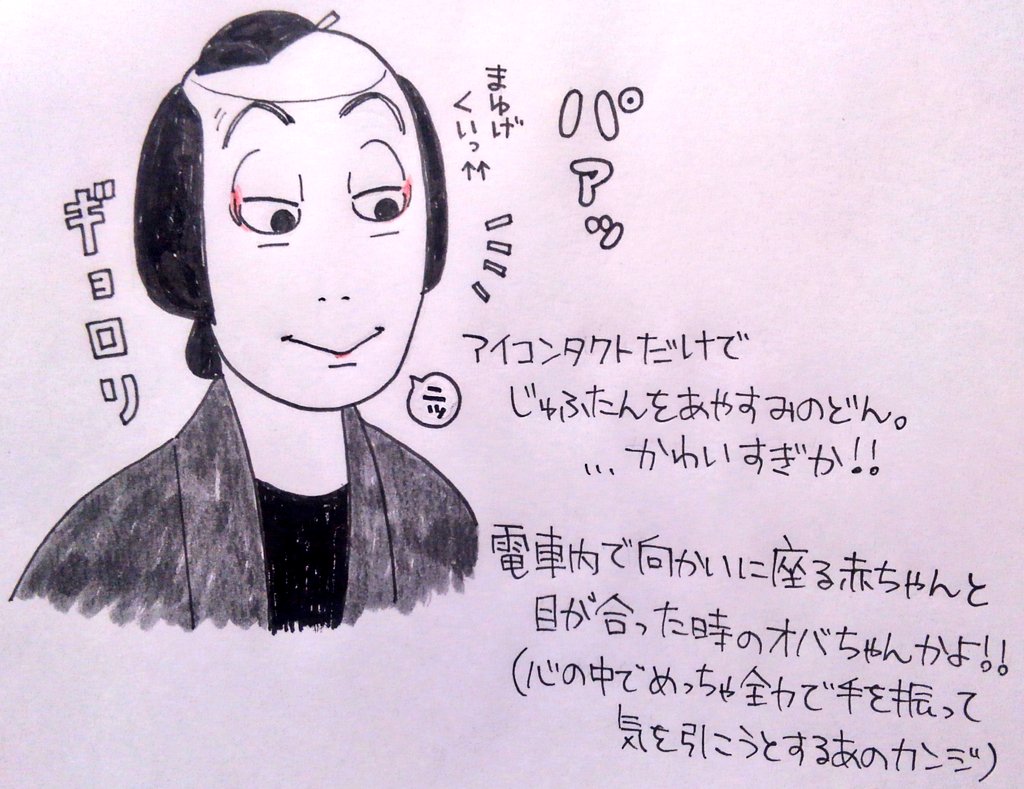 ギョロリ
まゆげ
くいっ↑↑
パァッ
ニッ
アイコンタクトだけで
じゅふたんをあやすみのどん。
…かわいすぎか!!
電車内で向かいに座る赤ちゃんと
目が合った時のオバちゃんかよ!!
(心の中でめっちゃ全力で手を振って
気を引こうとするあのカンジ)